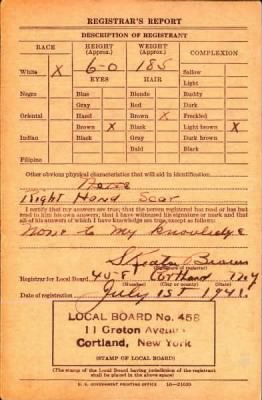 REGISTRAR'S REPORT
DESCRIPTION OF REGISTRANT
RACE HEIGHT (Approx.) WEIGHT (Approx.) COMPLEXION
White X 6-0 185 Sallow
EYES HAIR Light
Negro Blue Blonde Ruddy
Gray Red Dark
Oriental Hazel Brown X Freckled
Brown X Black Light brown X
Indian Black Gray Dark brown
Bald Black
Filipino
Other obvious physical characteristics that will aid in identification
Right Hand Scar
I certify that my answers are true; that the person registered has read or has had
read to him his own answers; that I have witnessed his signature or mark and that
all of his answers of which I have knowledge are true, except as follows:
None to my Knowledge
(Signature of registrar)
Registrar for Local Board 458 Cortland N.Y.
(Number) (City or county) (State)
Date of registration July 1st 1941.
LOCAL BOARD No. 458
11 Groton Avenue
Cortland, New York
(STAMP OF LOCAL BOARD)
(The stamp of the Local Board having jurisdiction of the registrant
shall be placed in the above space)
U. S. GOVERNMENT PRINTING OFFICE 16—21630